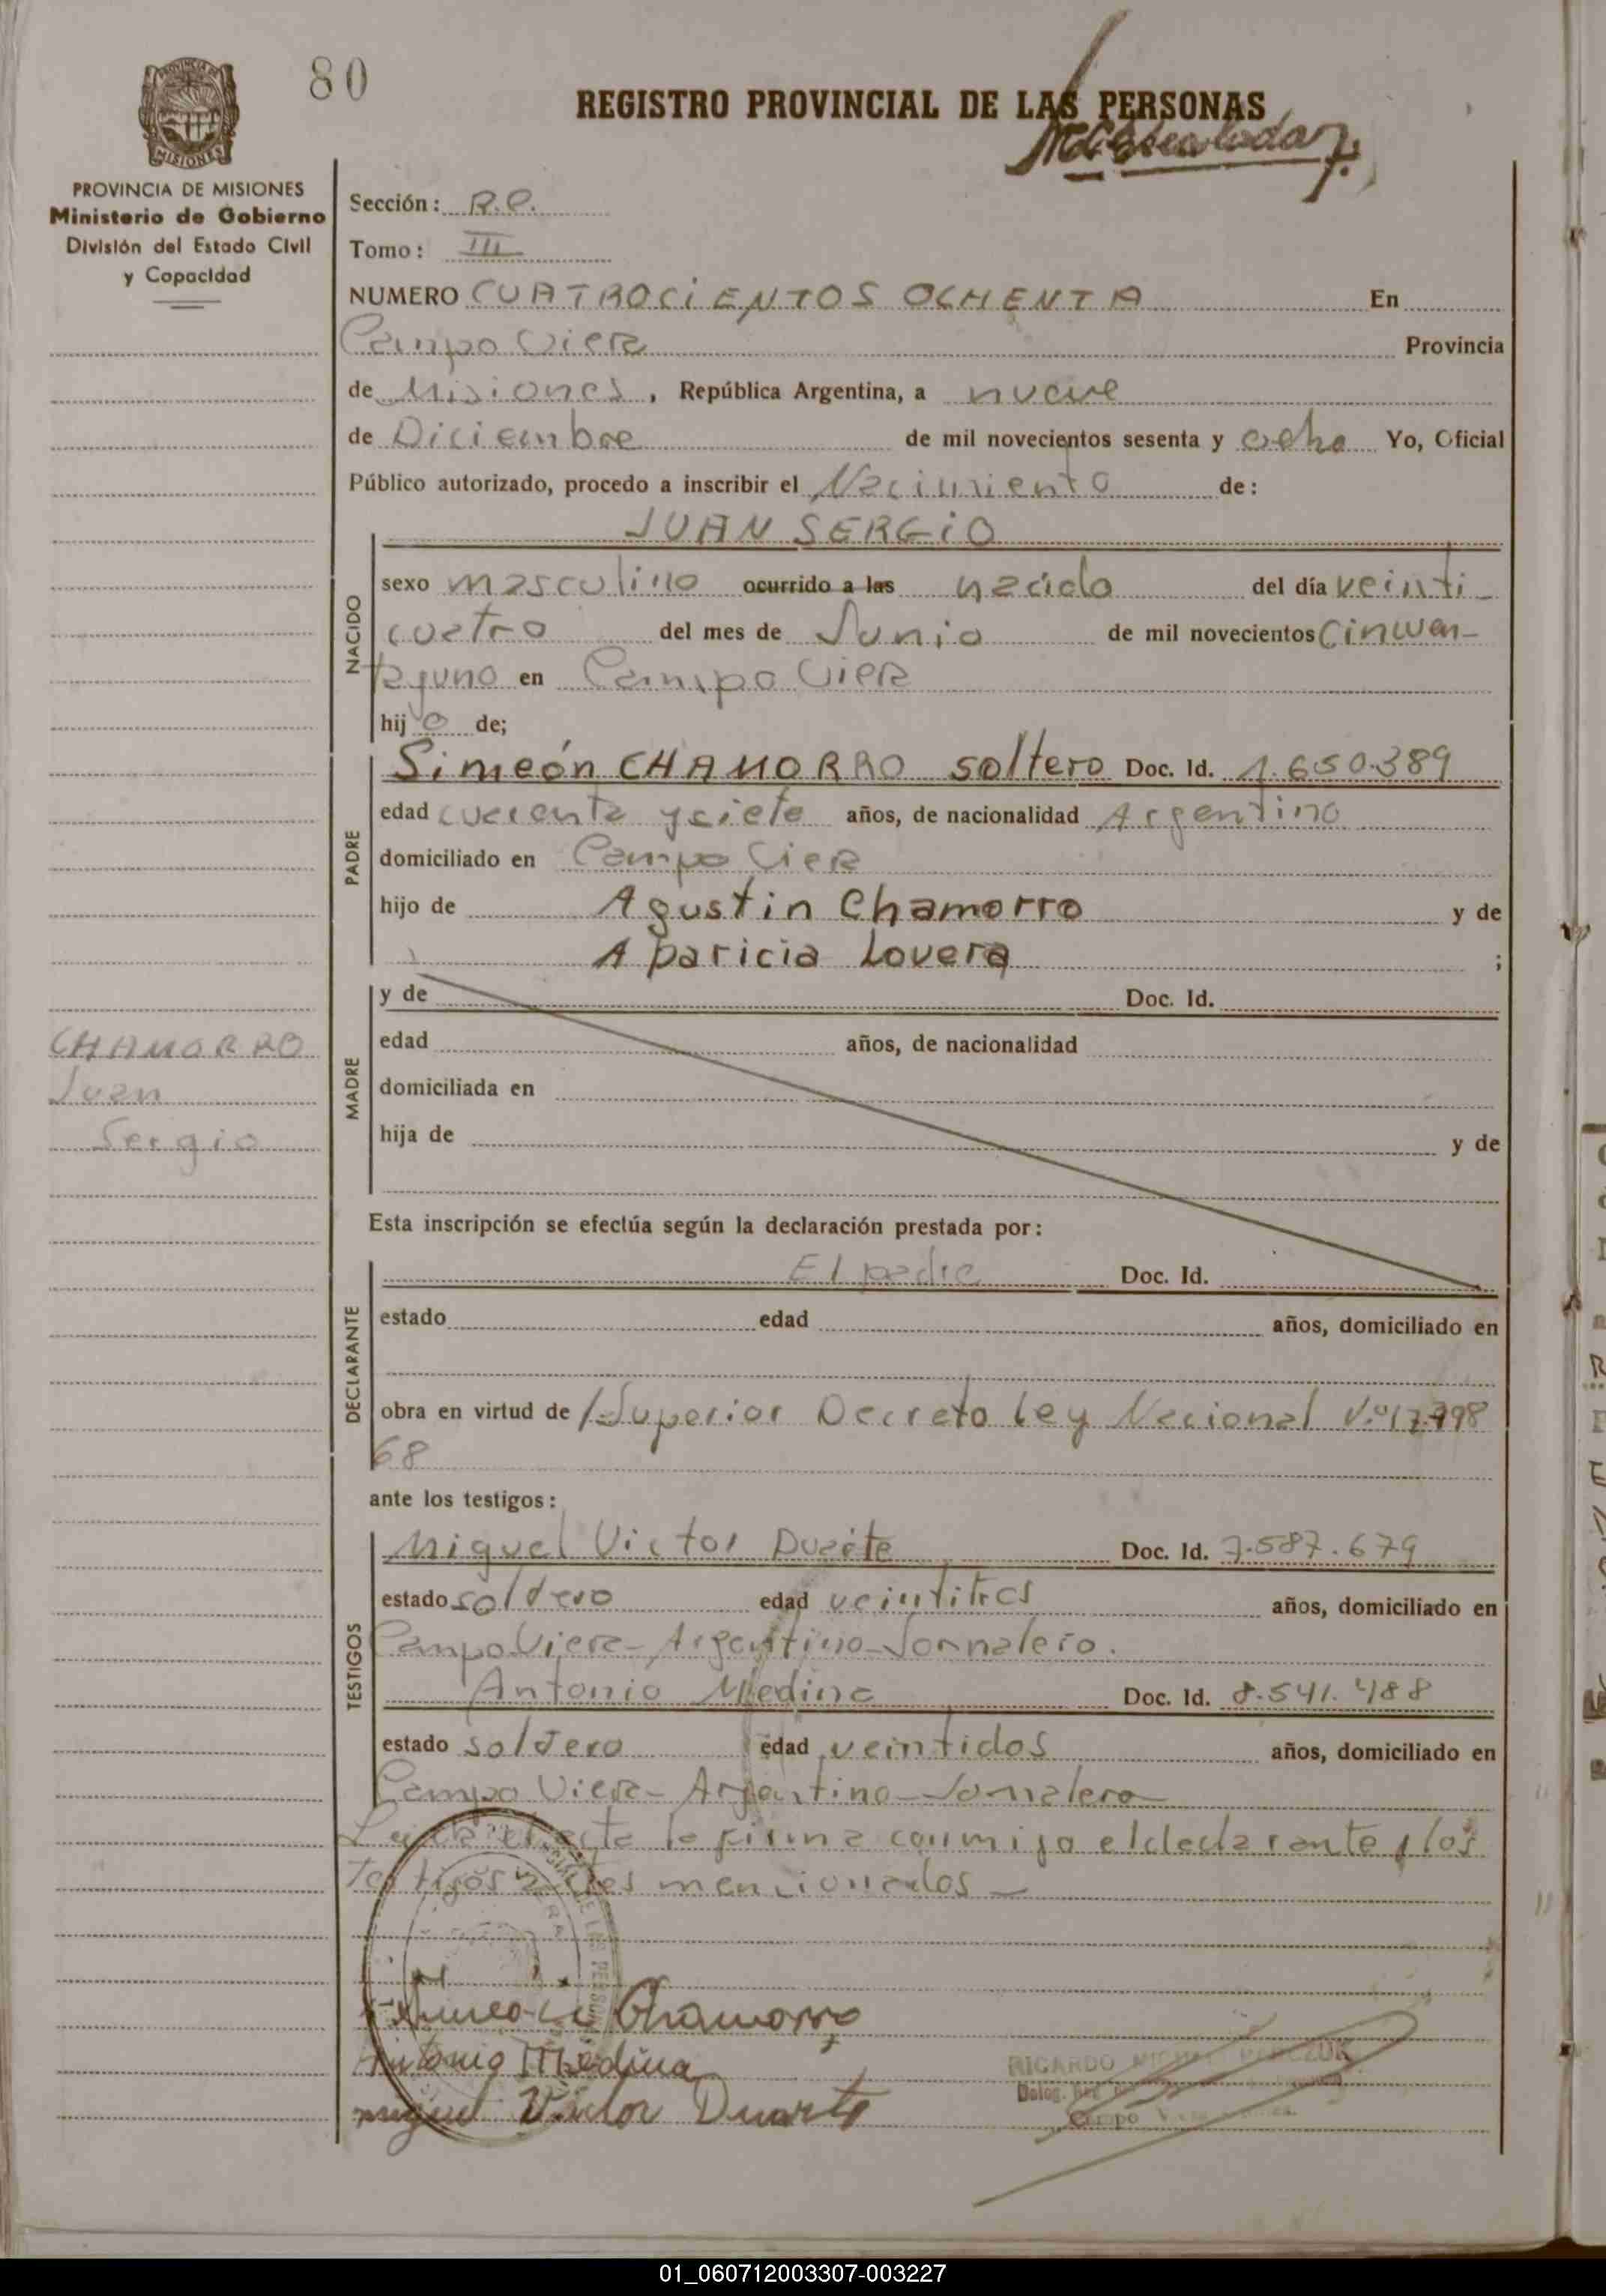 80
REGISTRO PROVINCIAL DE LAS PERSONAS
PROVINCIA DE MISIONES
Ministerio de Gobierno
División del Estado Civil
y Capacidad
Sección: R.P.
Tomo: III
NUMERO CUATROCIENTOS OCHENTA En
Campo Viera Provincia
de Misiones, República Argentina, a nueve
de Diciembre de mil novecientos sesenta y ocho Yo, Oficial
Público autorizado, procedo a inscribir el Nacimiento de:
JUAN SERGIO
NACIDO
sexo masculino ocurrido a las nacido del día veinti-
cuatro del mes de Junio de mil novecientos Cincuen-
tayuno en Campo Viera
hijo de;
PADRE
Simeón CHAMORRO soltero Doc. Id. 1.650.389
edad cuarenta y siete años, de nacionalidad Argentino
domiciliado en Campo Viera
hijo de Agustin Chamorro y de
Aparicia Lovera ;
MADRE
y de Doc. Id.
edad años, de nacionalidad
domiciliada en
hija de y de
CHAMORRO
Juan
Sergio
Esta inscripción se efectúa según la declaración prestada por:
DECLARANTE
El padre Doc. Id.
estado edad años, domiciliado en
obra en virtud de Superior Decreto Ley Nacional
68
ante los testigos:
TESTIGOS
Miguel Victor Duarte Doc. Id. 7.587.679
estado soltero edad veintitres años, domiciliado en
Campo Viera-Argentino-Jornalero.
Antonio Medina Doc. Id. 8.541.488
estado soltero edad veintidos años, domiciliado en
Campo Viera-Argentino-Jornalero
el acta la firma conmigo el declarante y los
testigos antes mencionados
Chamorro
Antonio Medina
Miguel Victor Duarte
RICARDO
Campo
01_060712003307-003227